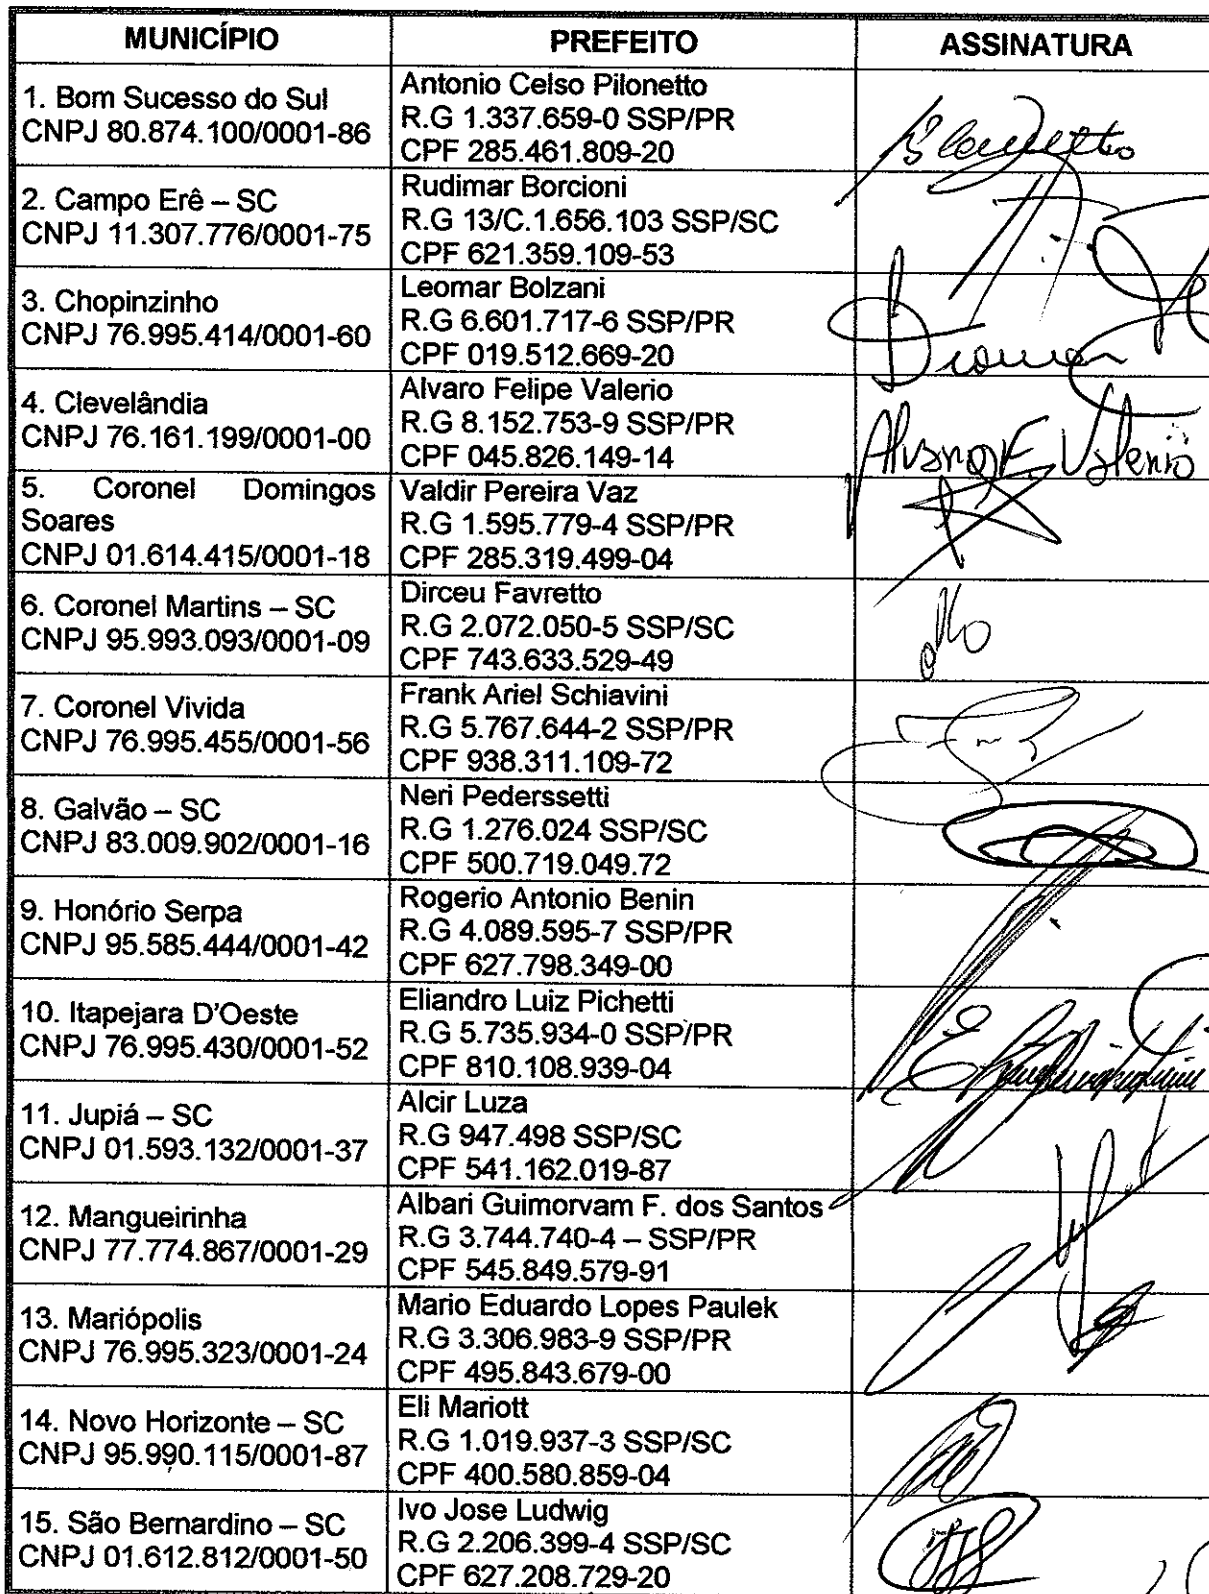 MUNICÍPIO PREFEITO ASSINATURA
1. Bom Sucesso do Sul
CNPJ 80.874.100/0001-86
Antonio Celso Pilonetto
R.G 1.337.659-0 SSP/PR
CPF 285.461.809-20
2. Campo Erê – SC
CNPJ 11.307.776/0001-75
Rudimar Borcioni
R.G 13/C.1.656.103 SSP/SC
CPF 621.359.109-53
3. Chopinzinho
CNPJ 76.995.414/0001-60
Leomar Bolzani
R.G 6.601.717-6 SSP/PR
CPF 019.512.669-20
4. Clevelândia
CNPJ 76.161.199/0001-00
Alvaro Felipe Valerio
R.G 8.152.753-9 SSP/PR
CPF 045.826.149-14
Alvaro F. Valerio
5. Coronel Domingos
Soares
CNPJ 01.614.415/0001-18
Valdir Pereira Vaz
R.G 1.595.779-4 SSP/PR
CPF 285.319.499-04
6. Coronel Martins – SC
CNPJ 95.993.093/0001-09
Dirceu Favretto
R.G 2.072.050-5 SSP/SC
CPF 743.633.529-49
7. Coronel Vivida
CNPJ 76.995.455/0001-56
Frank Ariel Schiavini
R.G 5.767.644-2 SSP/PR
CPF 938.311.109-72
8. Galvão – SC
CNPJ 83.009.902/0001-16
Neri Pederssetti
R.G 1.276.024 SSP/SC
CPF 500.719.049.72
9. Honório Serpa
CNPJ 95.585.444/0001-42
Rogerio Antonio Benin
R.G 4.089.595-7 SSP/PR
CPF 627.798.349-00
10. Itapejara D'Oeste
CNPJ 76.995.430/0001-52
Eliandro Luiz Pichetti
R.G 5.735.934-0 SSP/PR
CPF 810.108.939-04
11. Jupiá – SC
CNPJ 01.593.132/0001-37
Alcir Luza
R.G 947.498 SSP/SC
CPF 541.162.019-87
12. Mangueirinha
CNPJ 77.774.867/0001-29
Albari Guimorvam F. dos Santos
R.G 3.744.740-4 – SSP/PR
CPF 545.849.579-91
13. Mariópolis
CNPJ 76.995.323/0001-24
Mario Eduardo Lopes Paulek
R.G 3.306.983-9 SSP/PR
CPF 495.843.679-00
14. Novo Horizonte – SC
CNPJ 95.990.115/0001-87
Eli Mariott
R.G 1.019.937-3 SSP/SC
CPF 400.580.859-04
15. São Bernardino – SC
CNPJ 01.612.812/0001-50
Ivo Jose Ludwig
R.G 2.206.399-4 SSP/SC
CPF 627.208.729-20